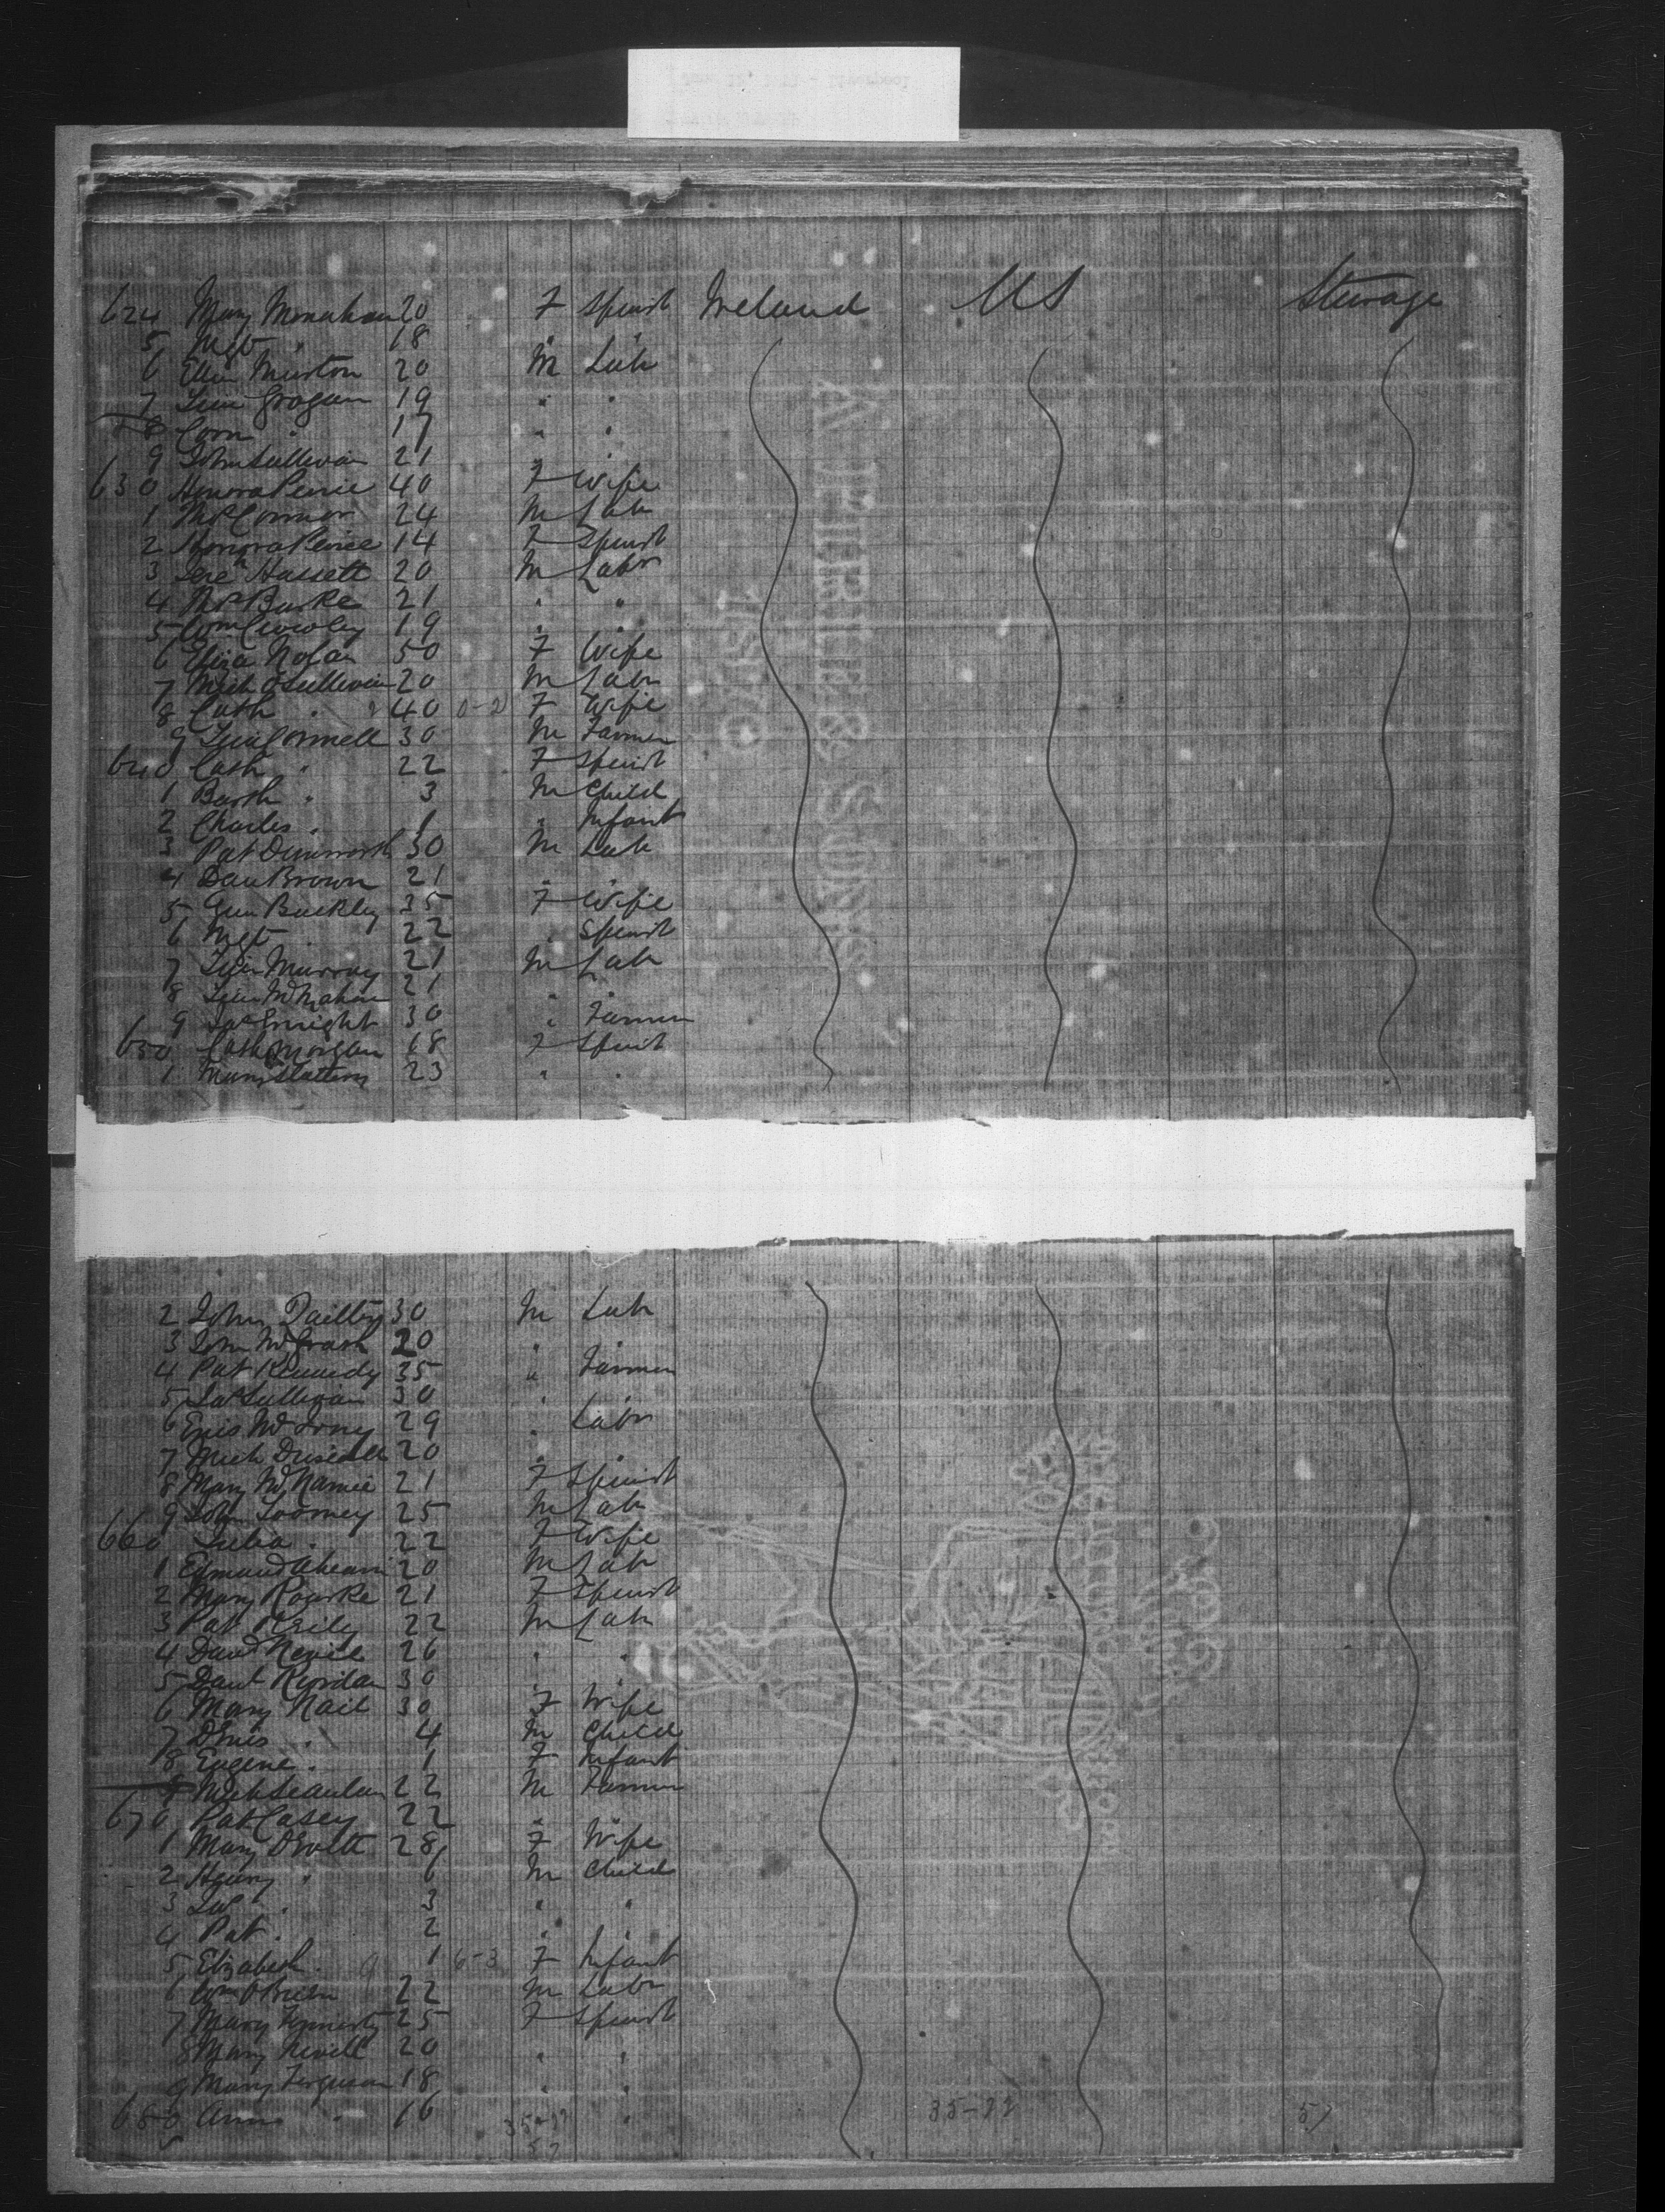 624 Mary Monahan 20 F Spinst Ireland US Steerage
5 Mgt " 18 " "
6 Ellen Murton 20 M Lab
7 Grogan 19 " "
8 Corn " 17 " "
9 John Sullivan 21 " "
630 Honora Peirce 40 F Wife
1 Thos Connor 24 M Lab
2 Honora Peirce 14 F Spinst
3 Jereh Hassett 20 M Labr
4 Thos Burke 21 " "
5 Wm Crowley 19 " "
6 Eliza Nolan 50 F Wife
7 Mich O'Sullivan 20 M Labr
8 Cath " 40 0-2 F Wife
9 Connell 30 M Farmer
640 Cath " 22 F Spinst
1 Barth " 3 M Child
2 Charles " 1 " Infant
3 Pat Dunworth 30 M Lab
4 Dan Brown 21 "
5 Buckley 35 F Wife
6 Mgt " 22 " Spinst
7 Murray 21 M Lab
8 McMahon 21 " "
9 Jas Enright 30 " Farmer
650 Cath Morgan 18 F Spinst
1 Mary Slattery 23 " "
A PIRIE & SONS
1870
2 John 30 M Lab
3 John McGrath 20 "
4 Pat Kennedy 35 " Farmer
5 Jas Sullivan 30 "
6 29 " Labr
7 Mich Driscoll 20 " "
8 Mary McNamee 21 F Spinst
9 John Toomey 25 M Lab
660 Julia " 22 F Wife
1 Edmund Ahearn 20 M Lab
2 Mary Rourke 21 F Spinst
3 Pat Reily 22 M Lab
4 Nevill 26 " "
5 Danl Riordan 30 "
6 Mary Nail 30 F Wife
7 Denis " 4 M Child
8 Eugene " 1 F Infant
9 Mich Scanlan 22 M Farmer
670 Pat Casey 22 " "
1 Mary 28 F Wife
2 Henry " 6 M Child
3 " 3 " "
4 Pat " 2 "
5 Elizabeth " 1 6-3 F Infant
6 Wm O'Brien 22 M Labr
7 Mary 25 F Spinst
8 Mary Nevill 20 " "
9 Mary Ferguson 18 " "
680 Anne " 16 "
35-22 35-22 57
57